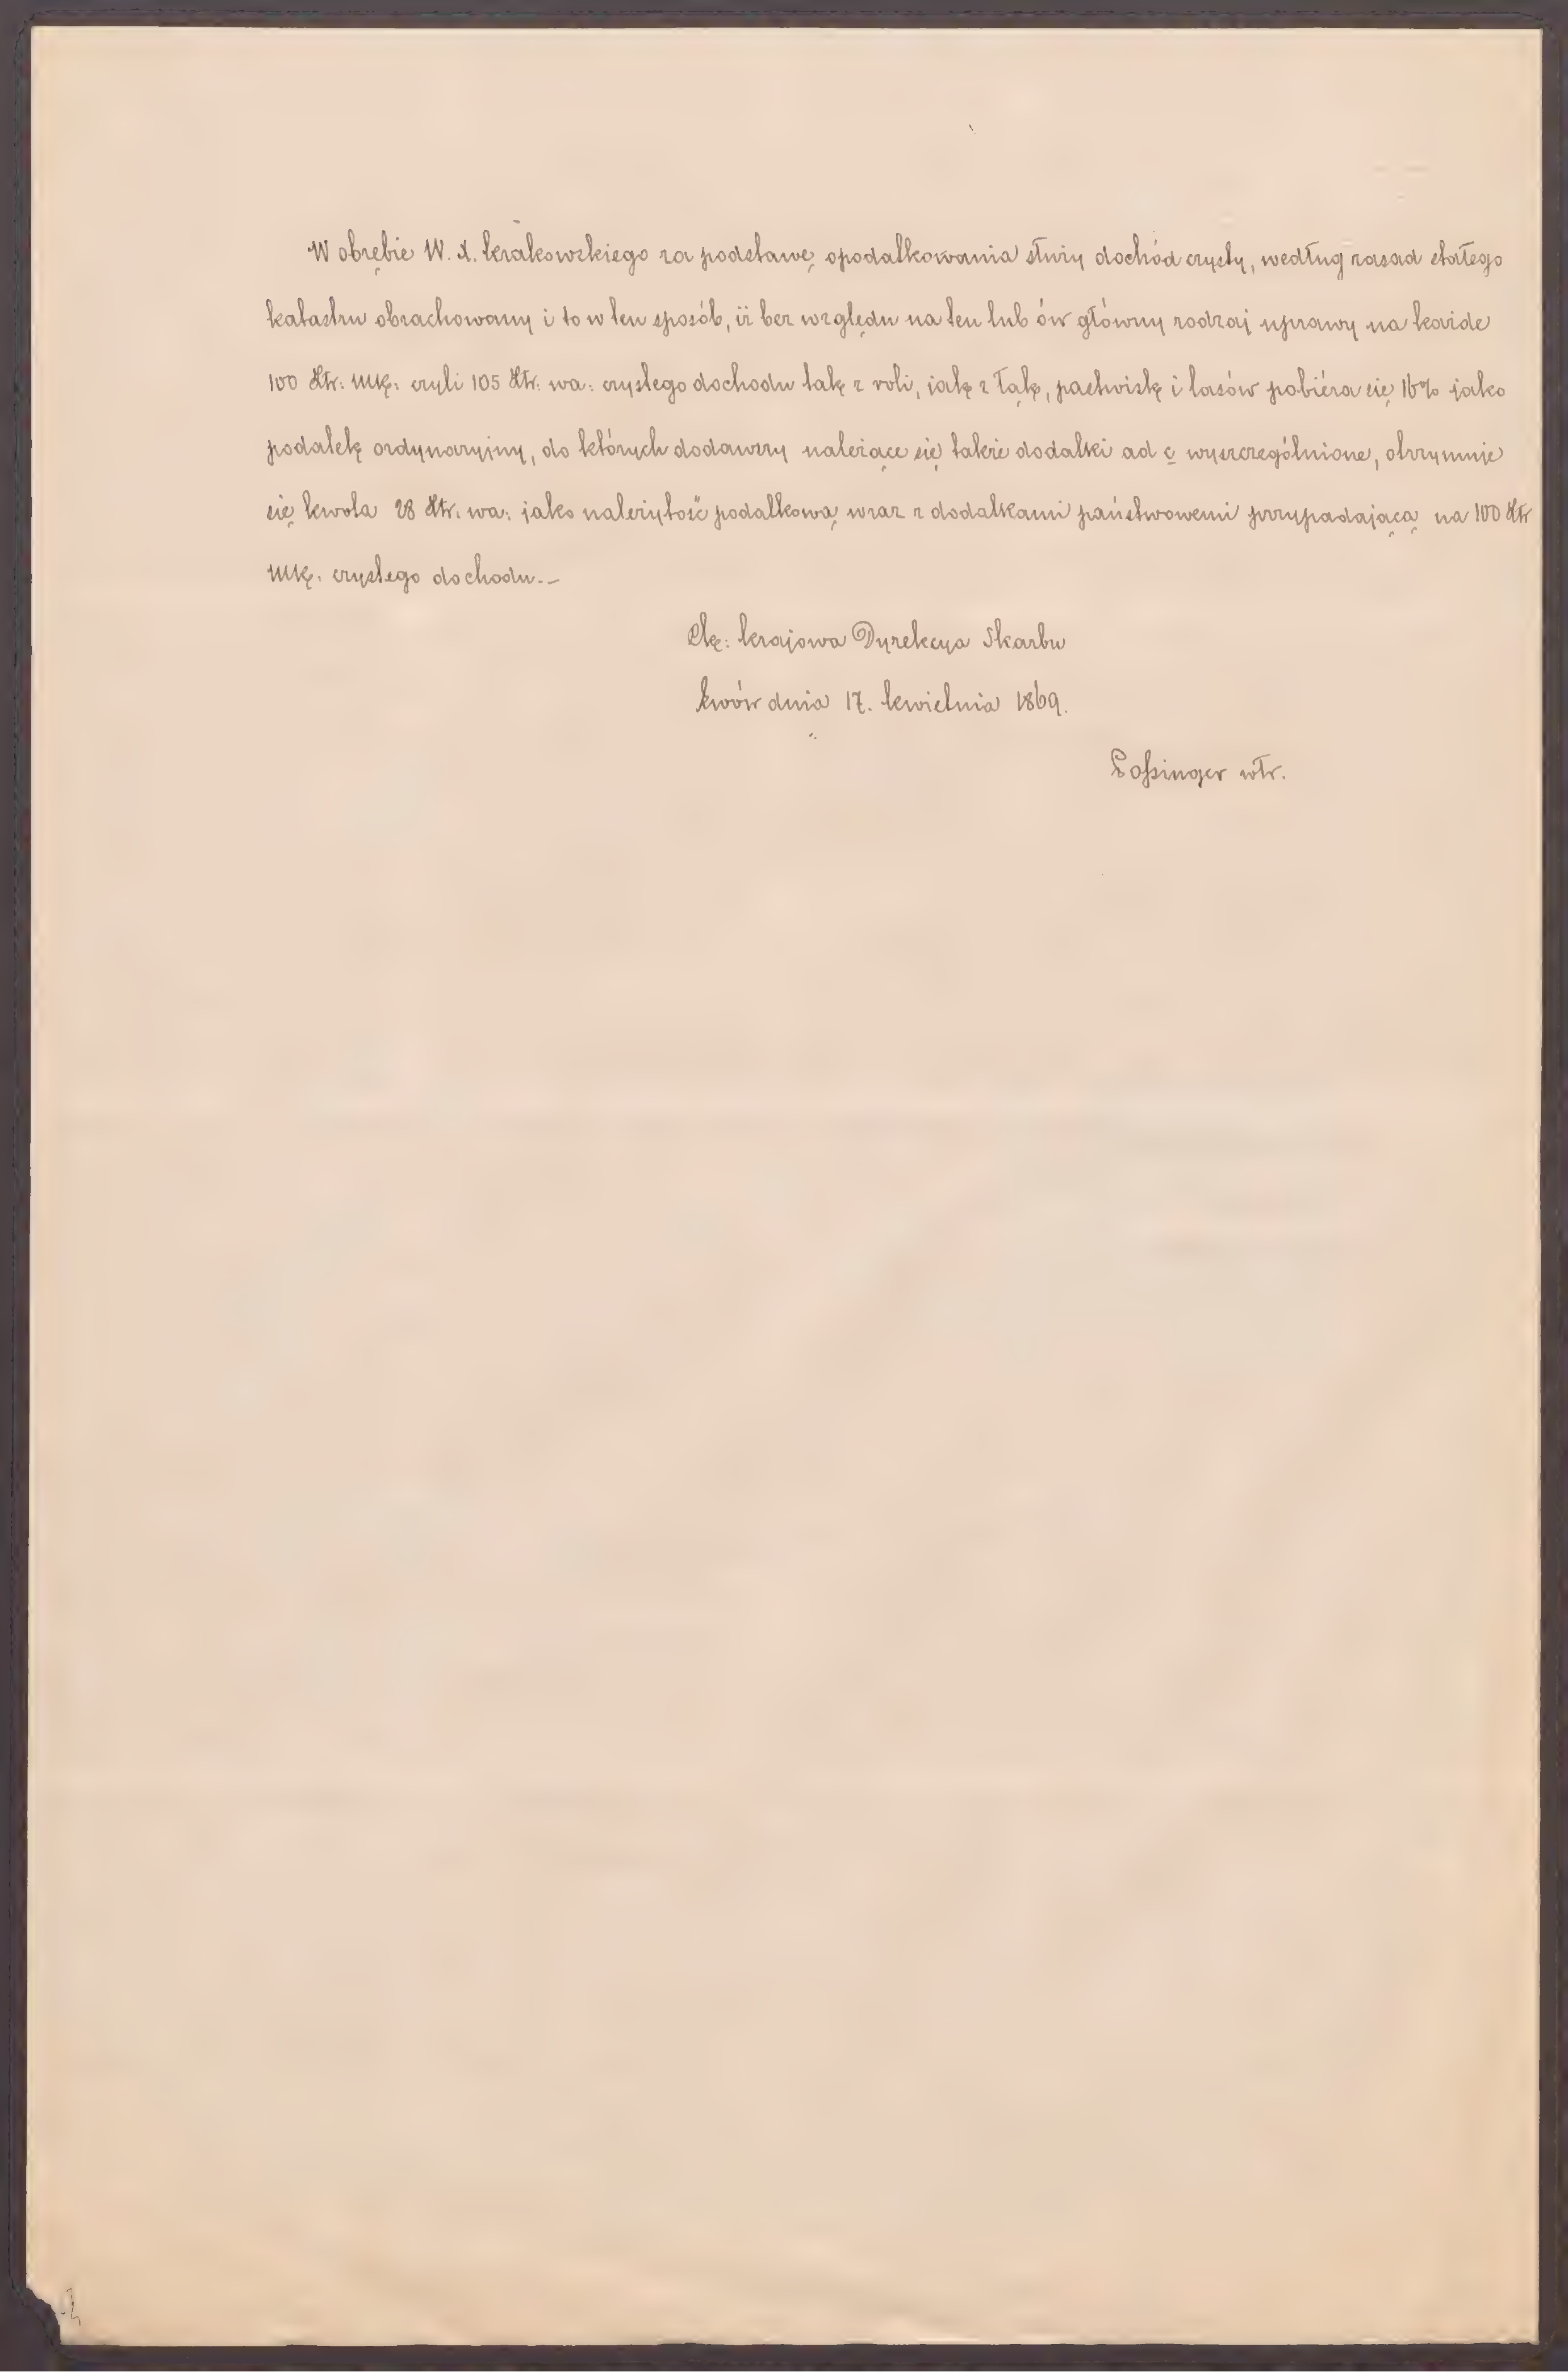 W obrębie W. X. krakowskiego za podstawę opodatkowania służy dochód czysty, według zasad stałego
katastru obrachowany i to w ten sposób, iż bez względu na ten lub ów główny rodzaj uprawy na każde
100 Złr: mk: czyli 105 Złr: wa: czystego dochodu tak z roli, jak z łąk, pastwisk i lasów pobiéra się 16% jako
podatek ordynaryjny, do których dodawszy należące się takie dodatki ad c wyszczególnione, otrzymuje
się kwota 28 Złr: wa: jako należytość podatkową wraz z dodatkami państwowemi przypadającą na 100 Złr
mk. czystego dochodu.–
Ck: krajowa Dyrekcya Skarbu
Lwów dnia 17. kwietnia 1869.
Possinger włr.